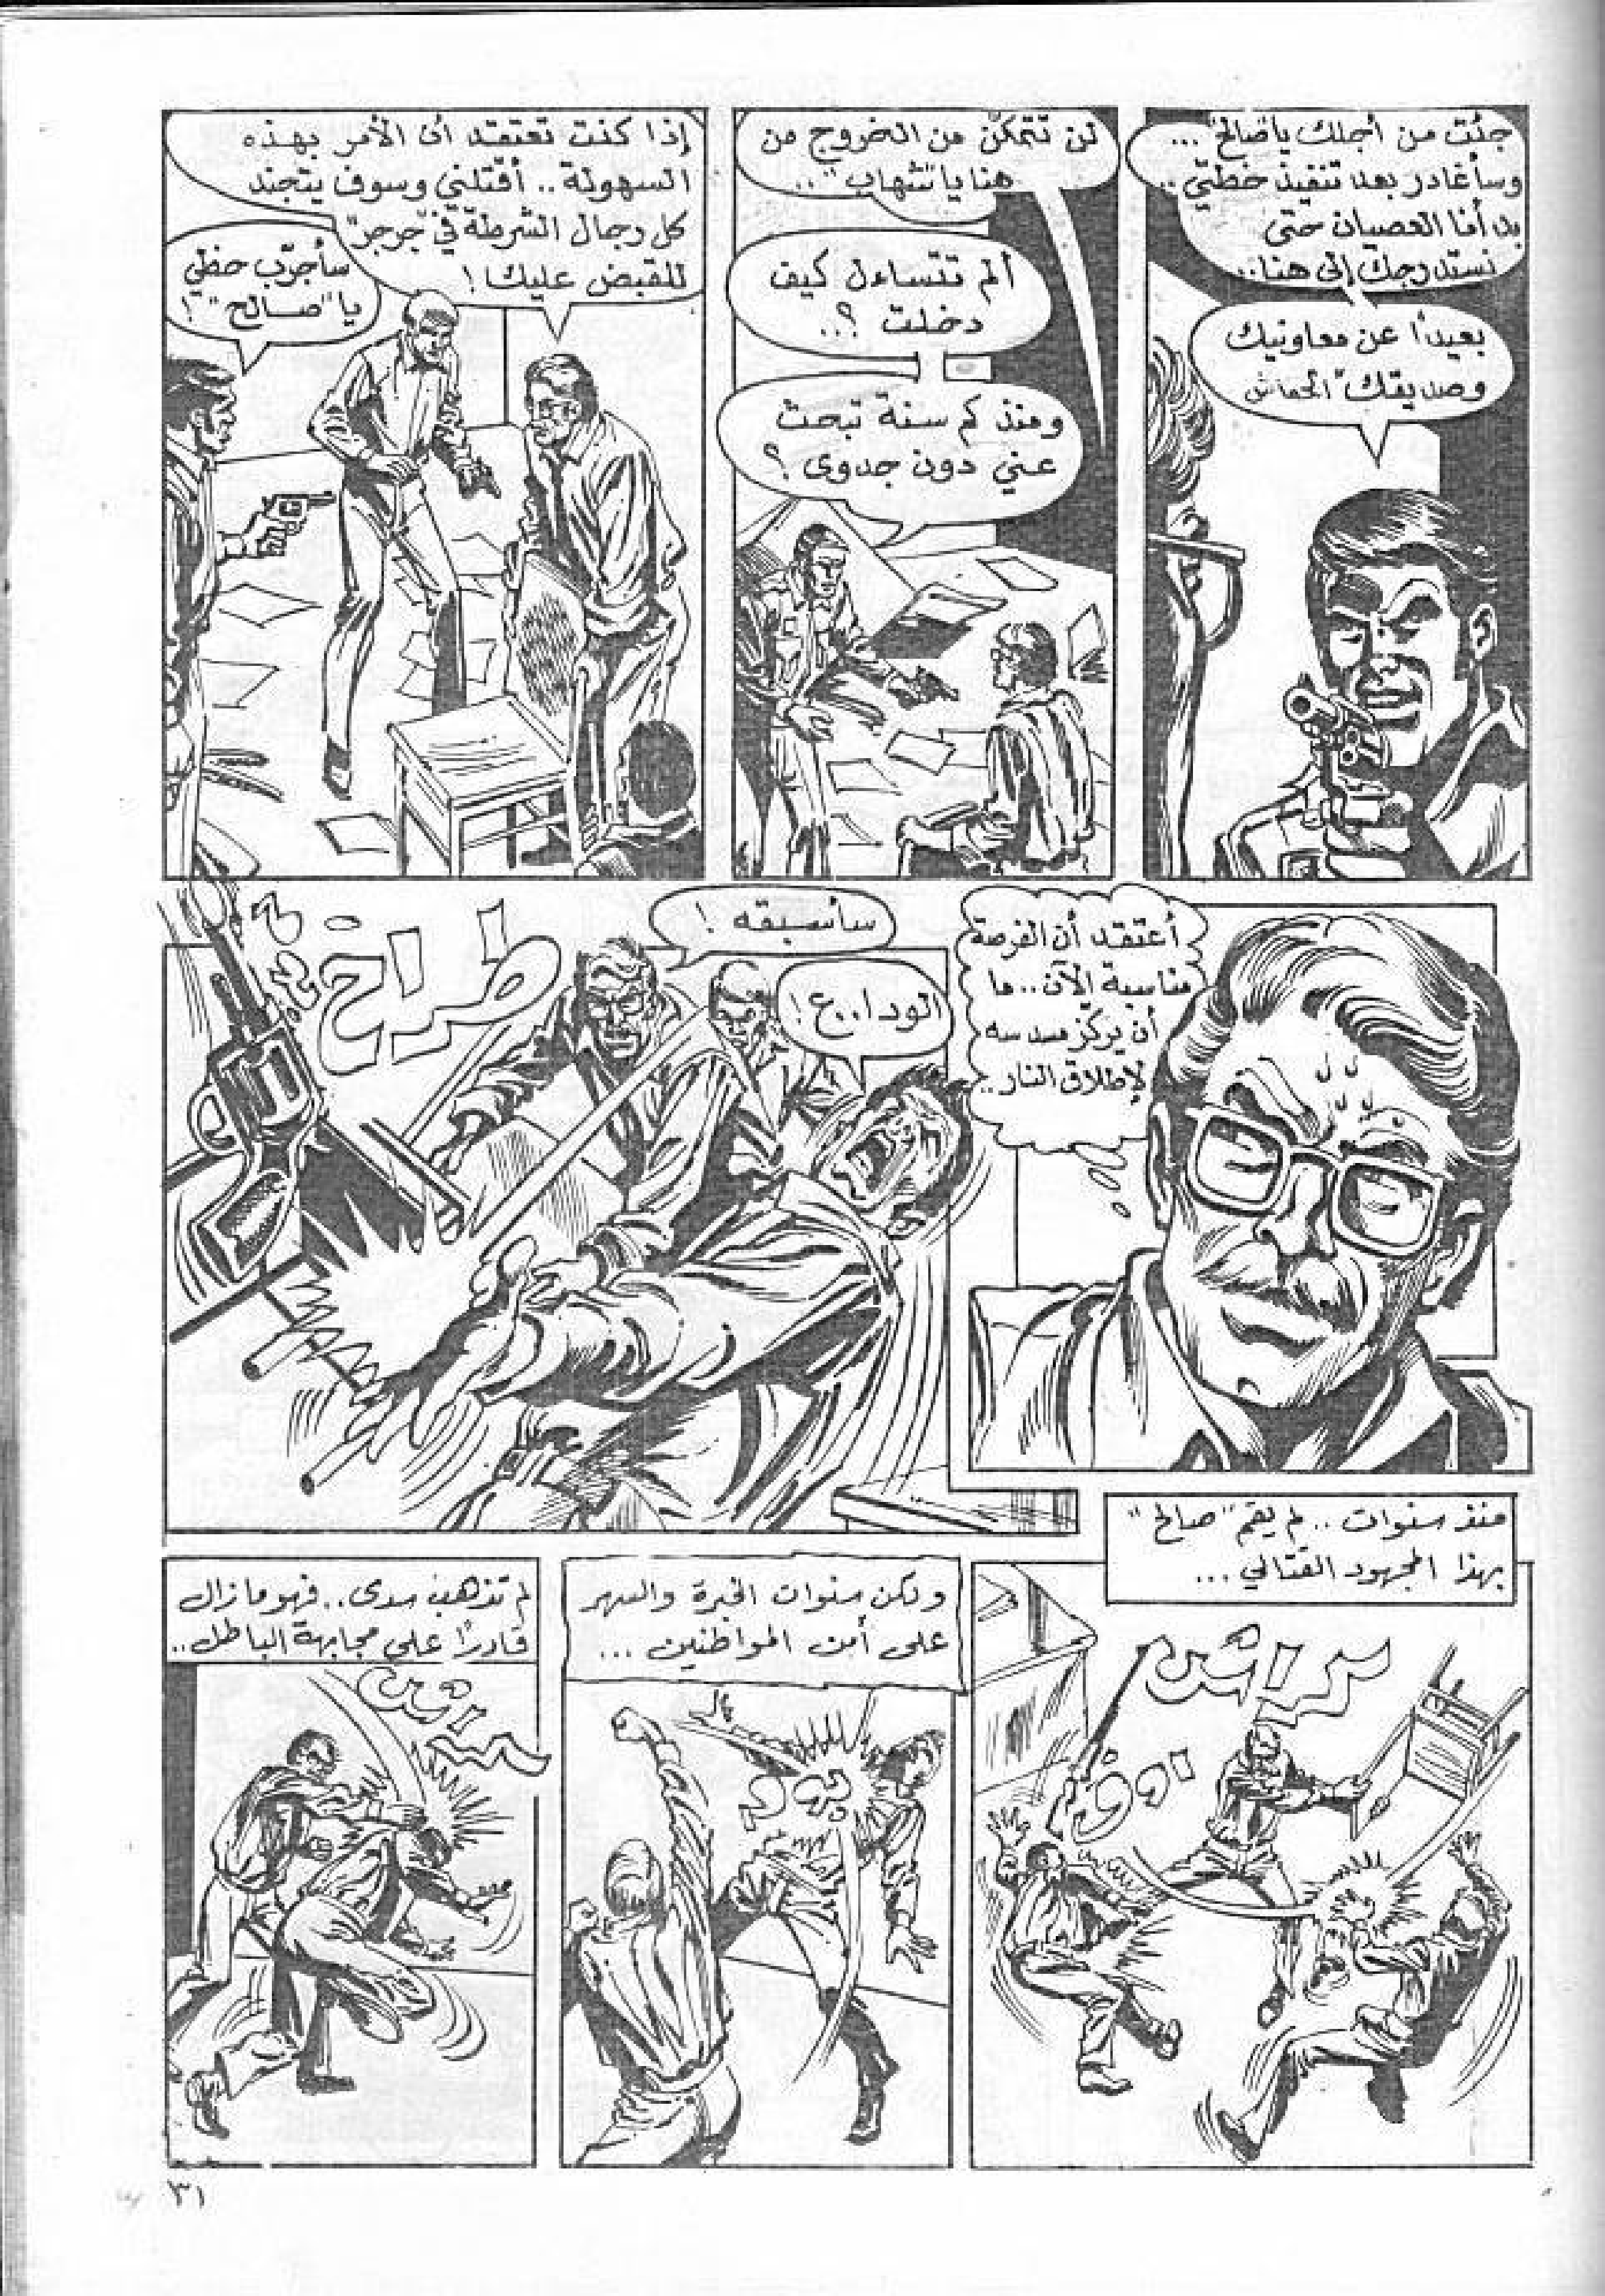 جئت من أجلك يا "صالح"...
وسأغادر بعد تنفيذ خطتي..
بدأنا العصيان حتى
نستدرجك إلى هنا..
بعيداً عن معاونيك
وصديقك "الخفاش
لن تتمكن من الخروج من
هنا يا "شهاب"..
ألم تتساءل كيف
دخلت ؟..
ومنذ كم سنة تبحث
عني دون جدوى ؟
إذا كنت تعتقد أن الأمر بهذه
السهولة.. أقتلني وسوف يتجند
كل رجال الشرطة في "جرجر"
للقبض عليك !
سأجرّب حظي
يا "صالح" !
أعتقد أن الفرصة
مناسبة الآن.. ما
أن يركّز مسدسه
لإطلاق النار..
سأسبقه !
الودا..ع !
طراخ
منذ سنوات.. لم يقم "صالح"
بهذا المجهود القتالي...
ولكن سنوات الخبرة والسهر
على أمن المواطنين ...
بوم
لم تذهب سدى.. فهو مازال
قادرًا على مجابهة الباطل..
٣١